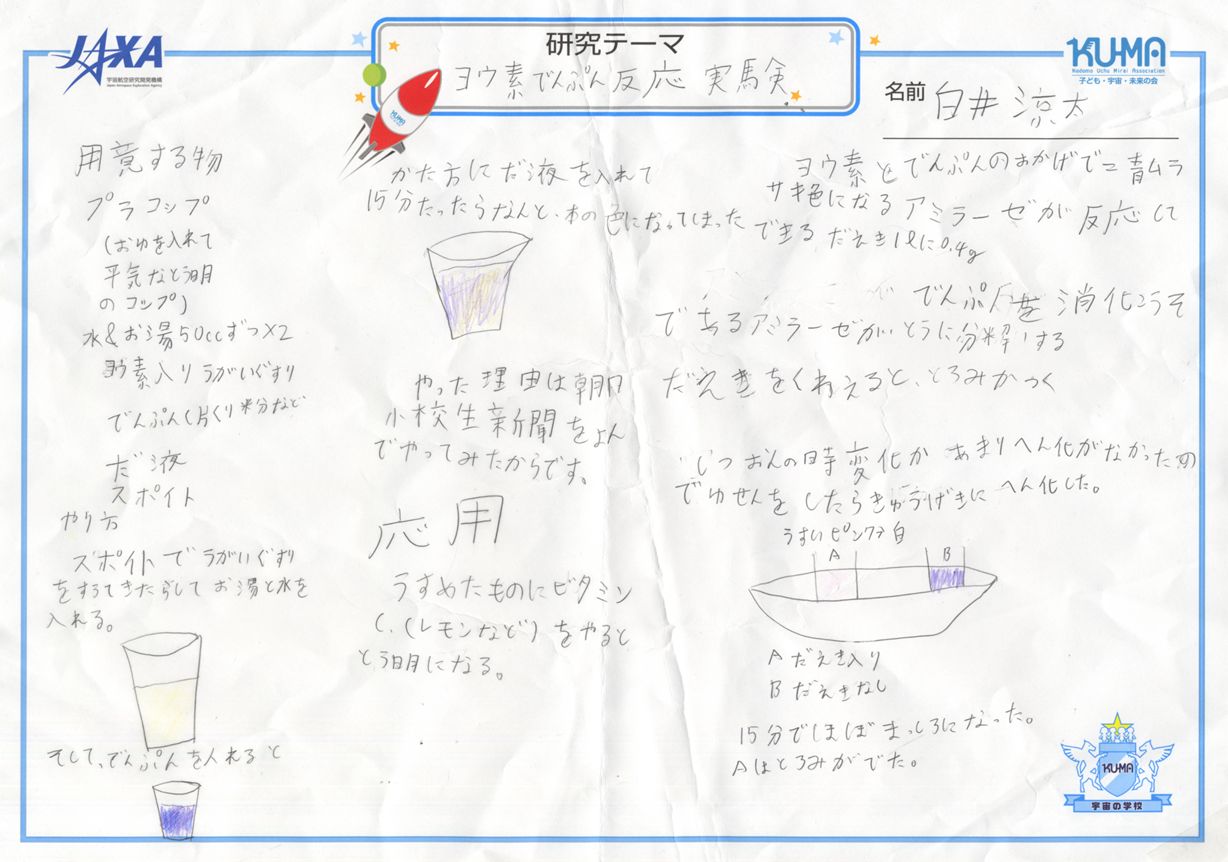 JAXA
宇宙航空研究開発機構
Japan Aerospace Exploration Agency
研究テーマ
ヨウ素でんぷん反応 実験
KUMA
KU-MA
Kodomo Uchu Mirai Association
子ども・宇宙・未来の会
名前 白井 涼太
用意する物
プラコップ
(おゆを入れて
平気なとう明
のコップ)
水&お湯50ccずつ×2
ヨウ素入りうがいぐすり
でんぷん(片くり粉など
だ液
スポイト
やり方
スポイトでうがいぐすり
をすうてきたらしてお湯と水を
入れる。
そして、でんぷんを入れると
かた方にだ液を入れて
15分たったらなんと、木の色になってしまった
やった理由は朝日
小校生新聞をよん
でやってみたからです。
応用
うすめたものにビタミン
C、(レモンなど)をやると
とう明になる。
ヨウ素とでんぷんのおかげで 青ムラ
サキ色になるアミラーゼが反応して
できる だえき1ℓに0.4g
でんぷんを消化こうそ
であるアミラーゼがいとうに分解する
だえきをくわえると、とろみがつく
じつおんの時変化が あまりへん化がなかったの
でゆせんをしたらきゅうげきにへん化した。
うすいピンク→白
A
B
A だえき入り
B だえきなし
15分でほぼまっしろになった。
Aはとろみがでた。
KU-MA
宇宙の学校